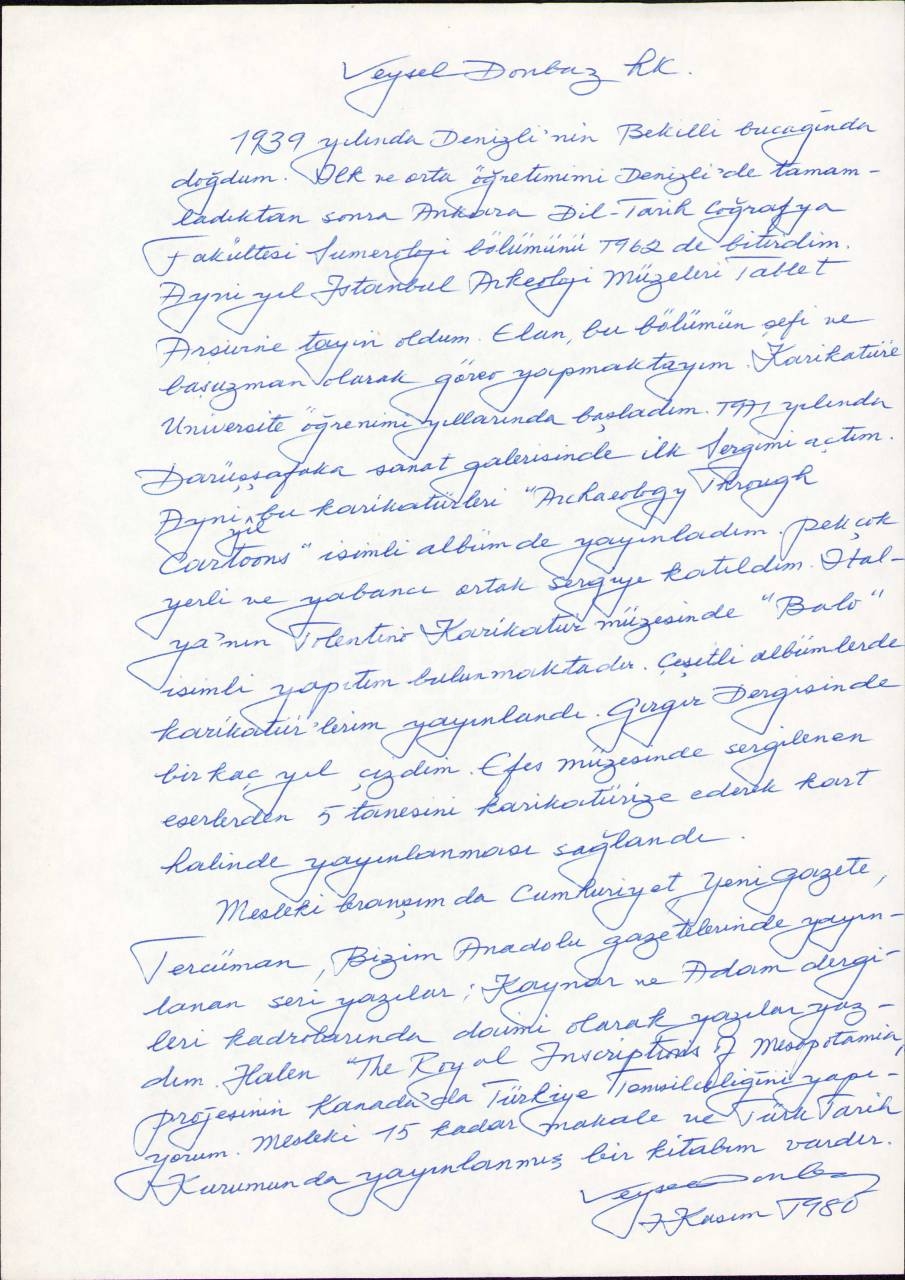 Veysel Donbaz hk.
1939 yılında Denizli'nin Bekilli bucağında
doğdum. İlk ve orta öğretimimi Denizli'de tamam-
ladıktan sonra Ankara Dil-Tarih Coğrafya
Fakültesi Sumeroloji bölümünü 1962 de bitirdim.
Ayni yıl İstanbul Arkeoloji Müzeleri Tablet
Arşivine tayin oldum. Elan, bu bölümün şefi ve
başuzman olarak görev yapmaktayım. Karikatüre
Üniversite öğrenimi yıllarında başladım. 1971 yılında
Darüşşafaka sanat galerisinde ilk Sergimi açtım.
Ayni yıl bu karikatürleri "Archaeology Through
Cartoons" isimli albümde yayınladım. pek çok
yerli ve yabancı ortak sergiye katıldım. İtal-
ya'nın Tolentino Karikatür müzesinde "Balo"
isimli yapıtım bulunmaktadır. Çeşitli albümlerde
karikatür'lerim yayınlandı. Gırgır Dergisinde
bir kaç yıl çizdim. Efes müzesinde sergilenen
eserlerden 5 tanesini karikatürize ederek kart
halinde yayınlanması sağlandı.
Mesleki branşım da Cumhuriyet, Yeni gazete,
Tercüman, Bizim Anadolu gazetelerinde yayın-
lanan seri yazılar; Kaynar ve Adam dergi-
leri kadrolarında daimi olarak yazılar yaz-
dım. Halen "The Royal Inscriptions of Mesopotamia,
projesinin Kanada'da Türkiye Temsilciliğini yapı-
yorum. Mesleki 15 kadar makale ve Türk Tarih
Kurumunda yayınlanmış bir kitabım vardır.
Veysel Donbaz
7 Kasım 1980